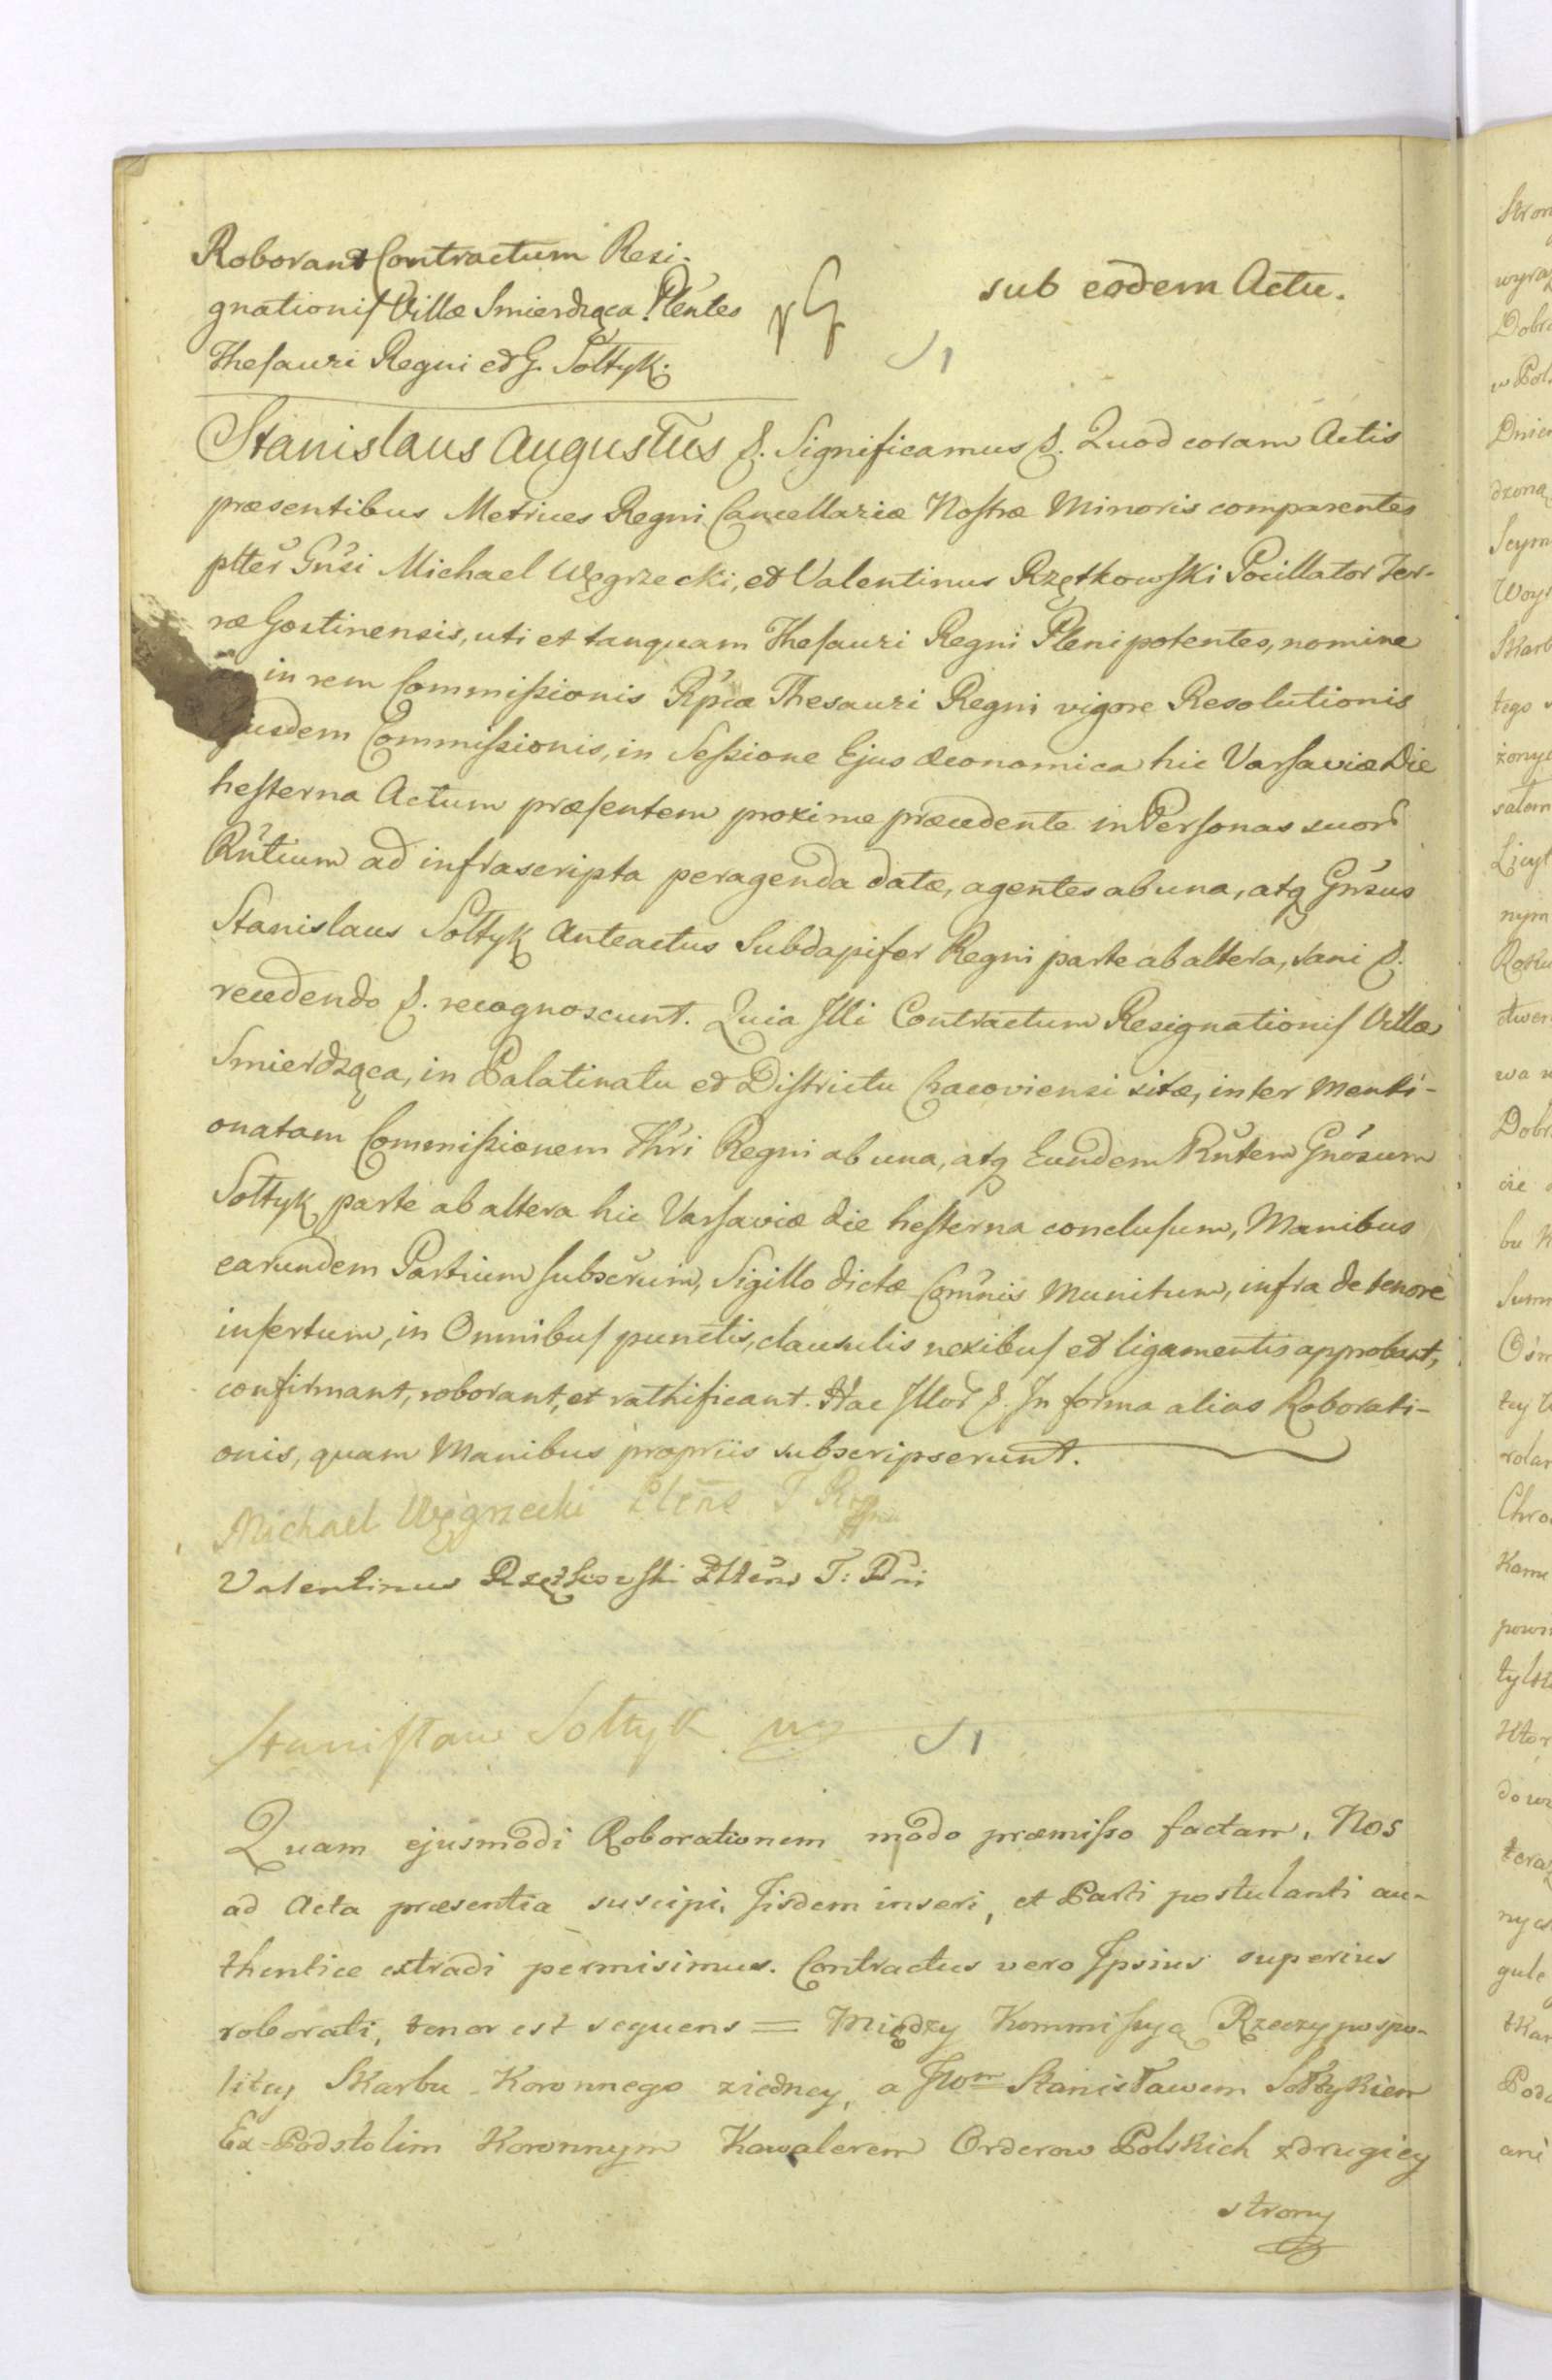 Roborant Contractum Resi-
gnationis Villæ Smierdząca Plentes
Thesauri Regni et G. Sołtyk.
sub eodem Actu.
Stanislaus Augustus &. Significamus &. Quod coram Actis
præsentibus Metrices Regni Cancellariæ Nostræ Minoris comparentes
plter Gnsi Michael Węgrzecki, et Valentinus Rzętkowski Pocillator Ter-
ræ Gostinensis, uti et tanquam Thesauri Regni Plenipotentes, nomine
in rem Commissionis Rpcæ Thesauri Regni vigore Resolutionis
ejusdem Commissionis, in Sessione Ejus œconomica hic Varsaviæ Die
hesterna Actum præsentem proxime præcedente in Personas suor
Rntium ad infrascripta peragenda datæ, agentes ab una, atq Gnsus
Stanislaus Sołtyk Anteactus Subdapifer Regni parte ab altera, sani &.
recedendo &. recognoscunt. Quia Illi Contractum Resignationis Villæ
Smierdząca, in Palatinatu et Districtu Cracoviensi sitæ, inter Menti-
onatam Commissionem Thri Regni ab una, atq Eundem Rntem Gnosum
Sołtyk parte ab altera hic Varsaviæ die hesterna conclusum, Manibus
earundem Partium subscrum, Sigillo dictæ Comnis Munitum, infra de tenore
insertum, in Omnibus punctis, clausulis nexibus et ligamentis approbant,
confirmant, roborant, et rathificant. Hac Illor &. In forma alias Roborati-
onis, quam Manibus propriis subscripserunt.
Michael Węgrzecki Plens T Regni
Valentinus Rzętkowski Pltens T: Rni
Stanisław Sołtyk mp
Quam ejusmodi Roborationem modo præmisso factam, Nos
ad Acta præsentia suscipi, Iisdem inseri, et Parti postulanti au-
thentice extradi permisimus. Contractus vero Ipsius superius
roborati, tenor est sequens = Między Kommissyą Rzeczypospo-
litey Skarbu Koronnego ziedney, a JWm Stanisławem Sołtykiem
Ex-Podstolim Koronnym Kawalerem Orderow Polskich zdrugiey
strony